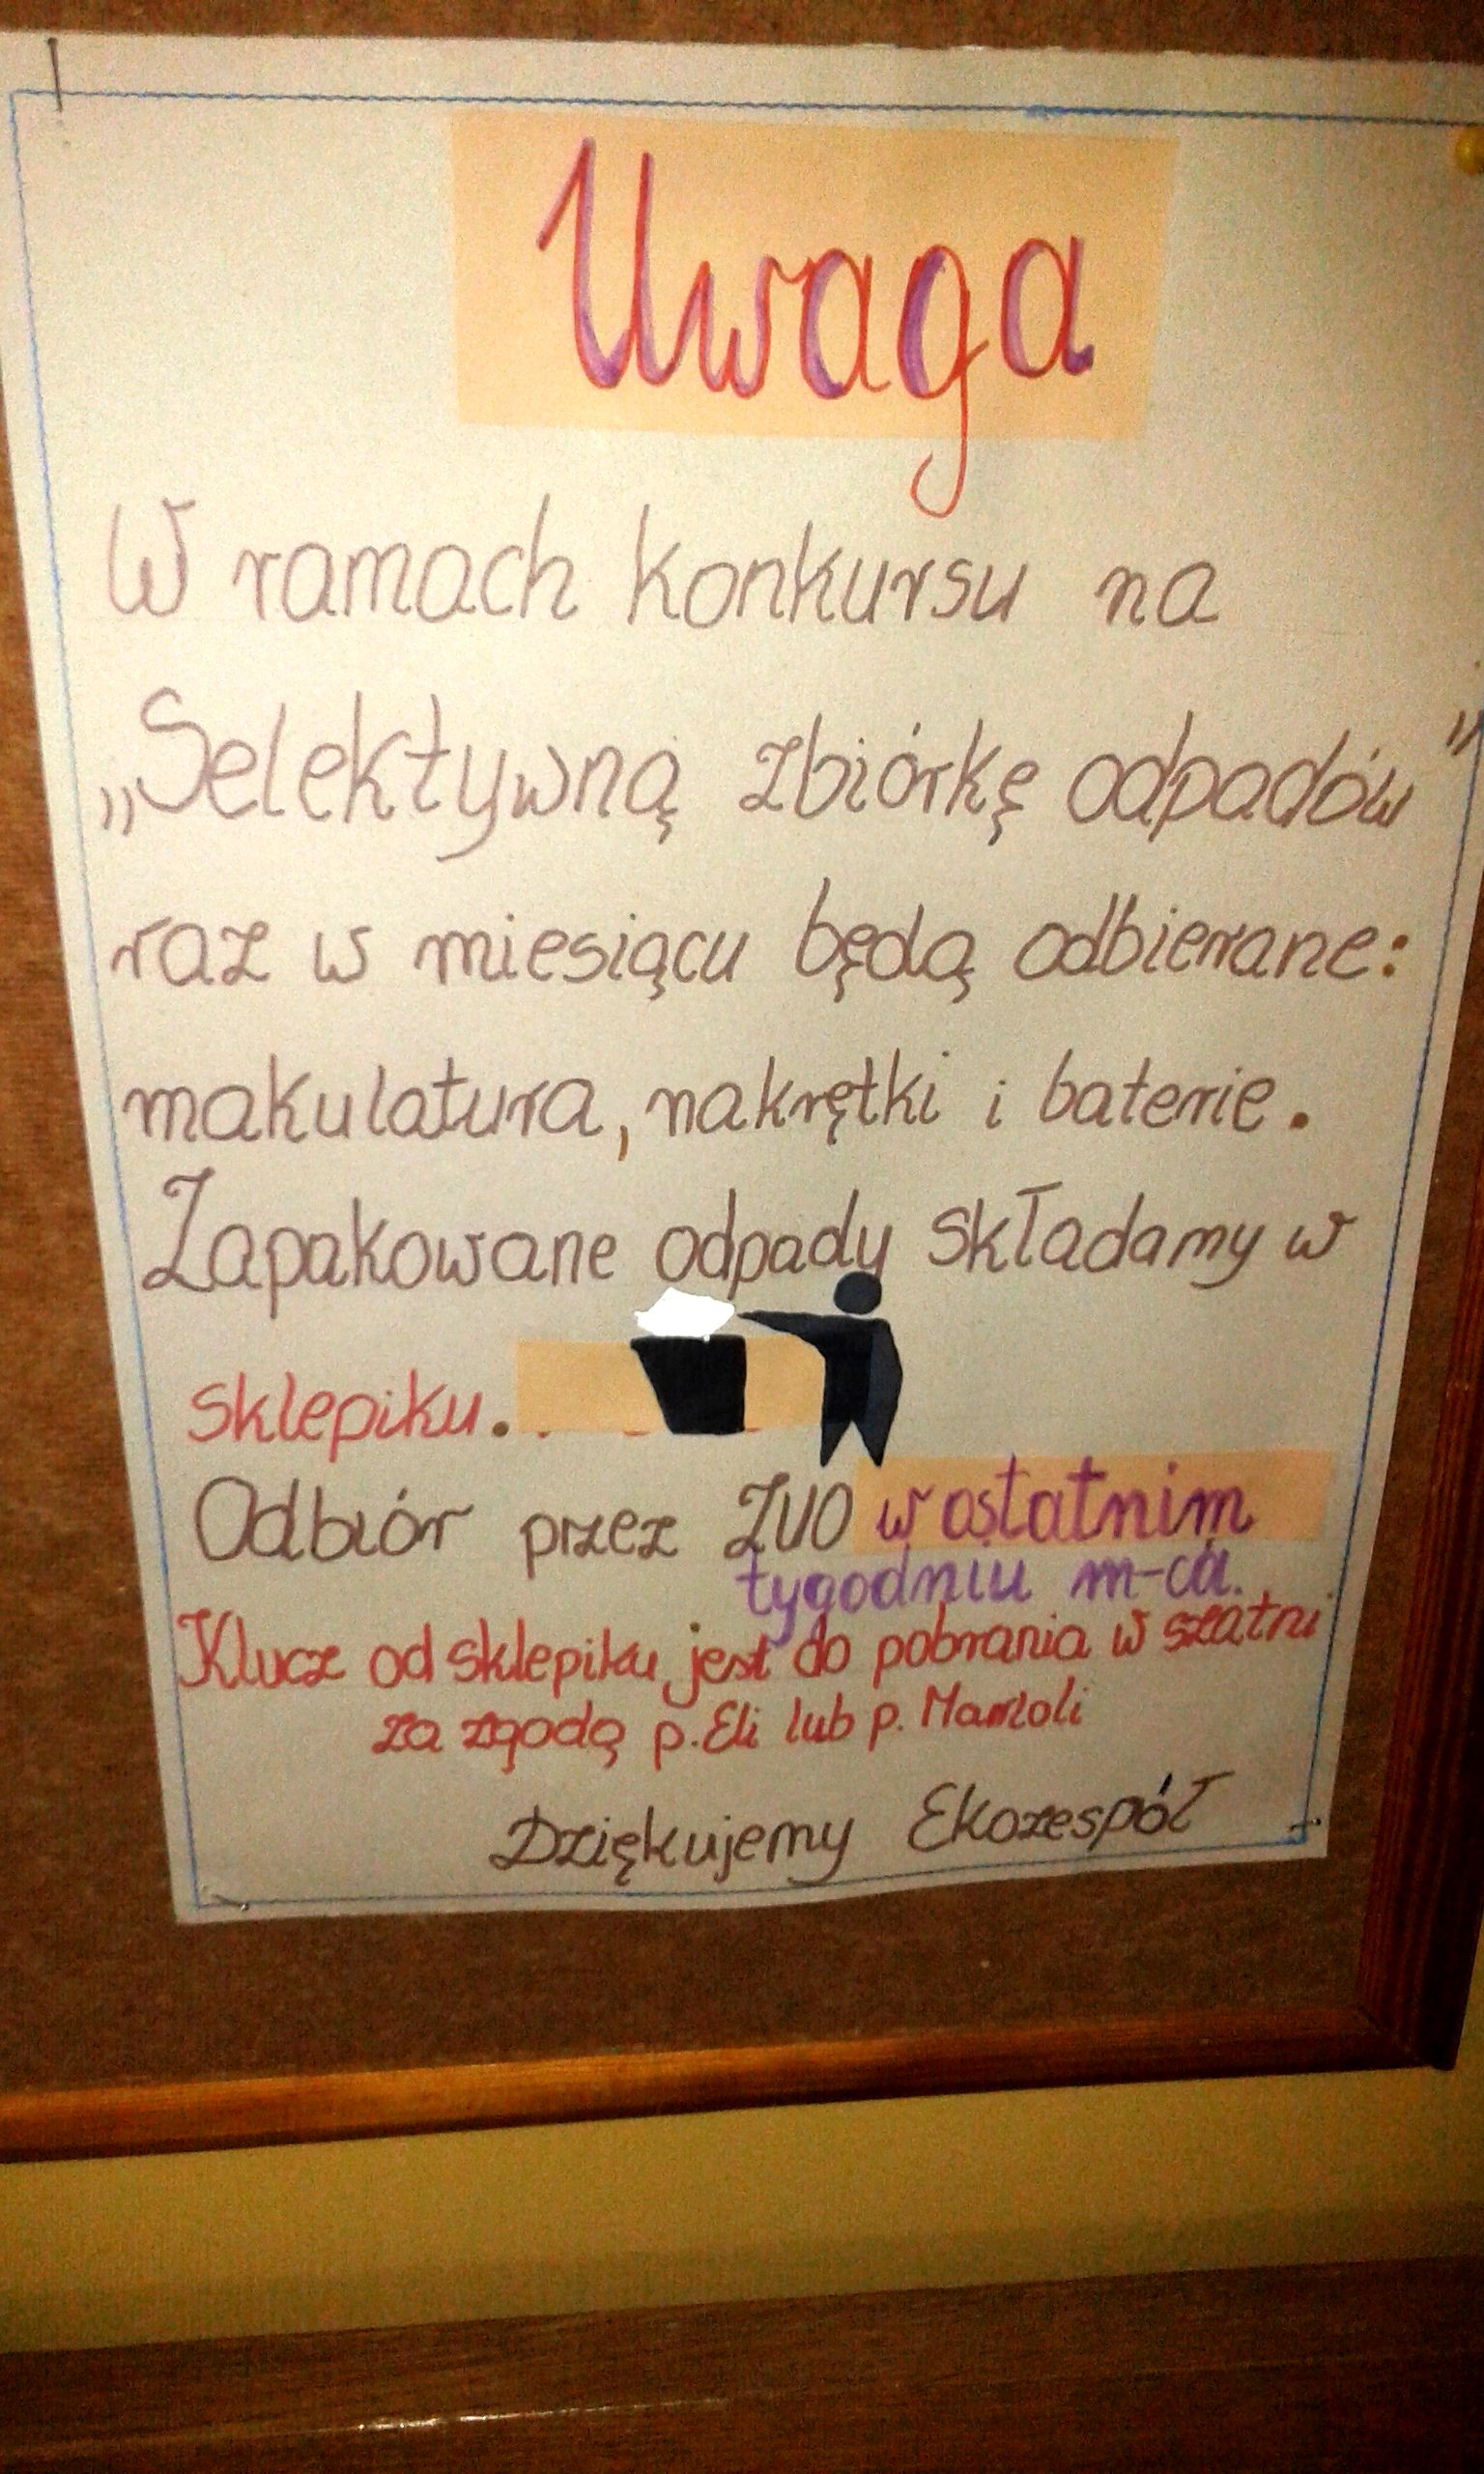 Uwaga
W ramach konkursu na
„Selektywną zbiórkę odpadów”
raz w miesiącu będą odbierane:
makulatura, nakrętki i baterie.
Zapakowane odpady składamy w
sklepiku.
Odbiór przez ZUO w ostatnim
tygodniu m-ca.
Klucz od sklepiku jest do pobrania w szatni
za zgodą p. Eli lub p. Marioli
Dziękujemy Ekozespół